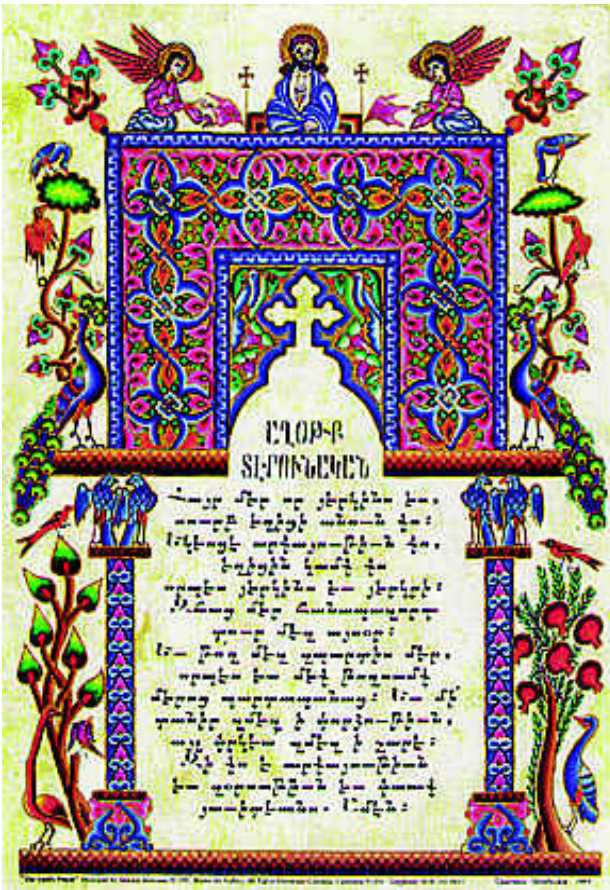 ԱՂՕԹՔ
ՏԷՐՈՒՆԱԿԱՆ
Հայր մեր որ յերկինս ես.
սուրբ եղիցի անուն քո։
Եկեսցէ արքայութիւն քո.
եղիցին կամք քո
որպէս յերկինս եւ յերկրի։
Զհաց մեր հանապազորդ
տուր մեզ այսօր։
Եւ թող մեզ զպարտիս մեր.
որպէս եւ մեք թողումք
մերոց պարտապանաց։ Եւ մի
տանիր զմեզ ի փորձութիւն.
այլ փրկեա զմեզ ի չարէ։
Զի քո է արքայութիւն
եւ զօրութիւն եւ փառք
յաւիտեանս. Ամէն։
"The Lord's Prayer"